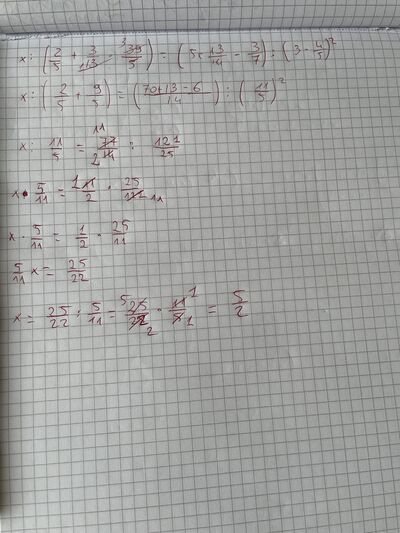 x : (2/5 + 3/13 · 39/5) = (5 + 13/14 - 3/7) : (3 - 4/5)²
x : (2/5 + 9/5) = (70+13-6/14) : (11/5)²
x : 11/5 = 77/14 : 121/25
x · 5/11 = 11/2 · 25/121
x · 5/11 = 1/2 · 25/11
5/11 x = 25/22
x = 25/22 : 5/11 = 25/22 · 11/5 = 5/2